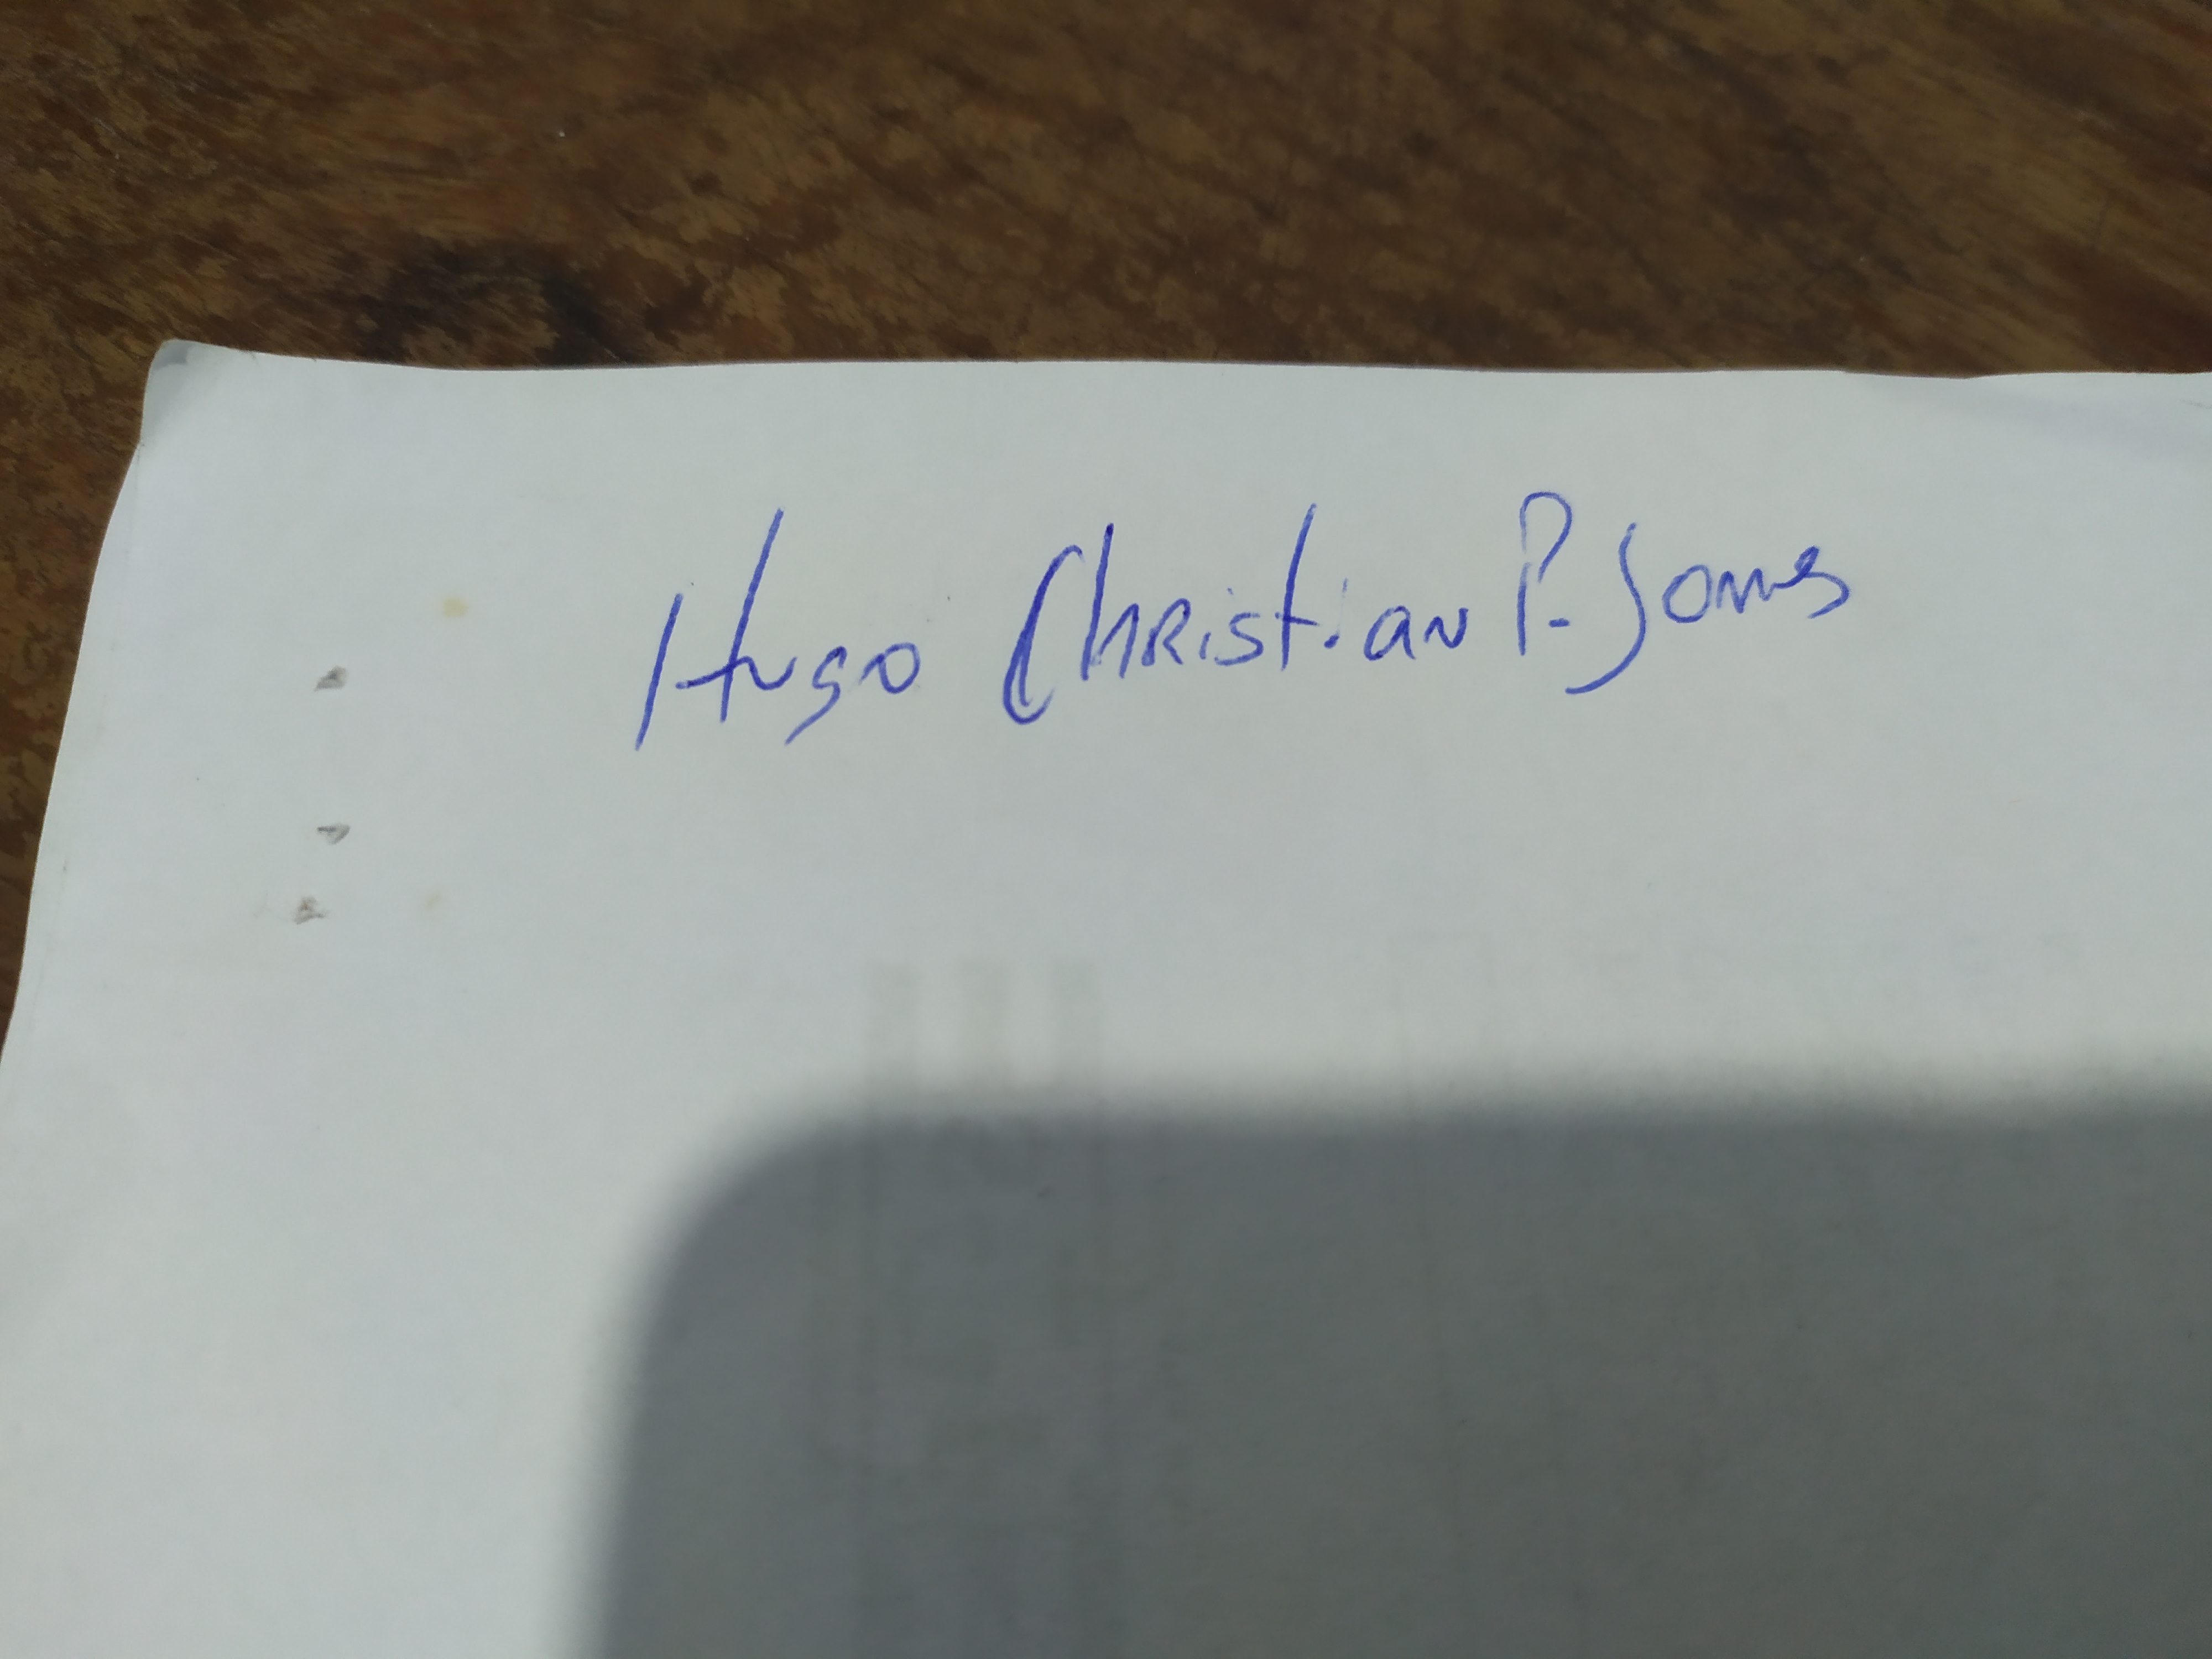 Hugo Christian P. Jones